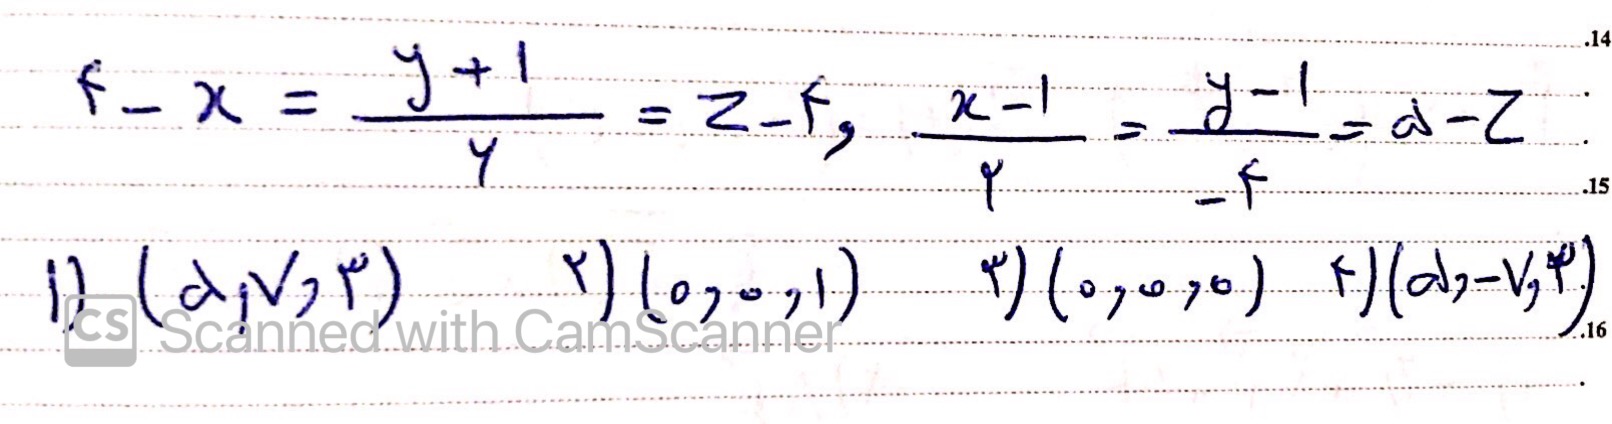 .14
۴ - x = (y + ۱)/۶ = z - ۴, (x - ۱)/۲ = (y - ۱)/-۴ = ۵ - z
.15
۱) (۵, ۷, ۳) ۲) (۰, ۰, ۱) ۳) (۰, ۰, ۰) ۴) (۵, -۷, ۳)
CS Scanned with CamScanner .16